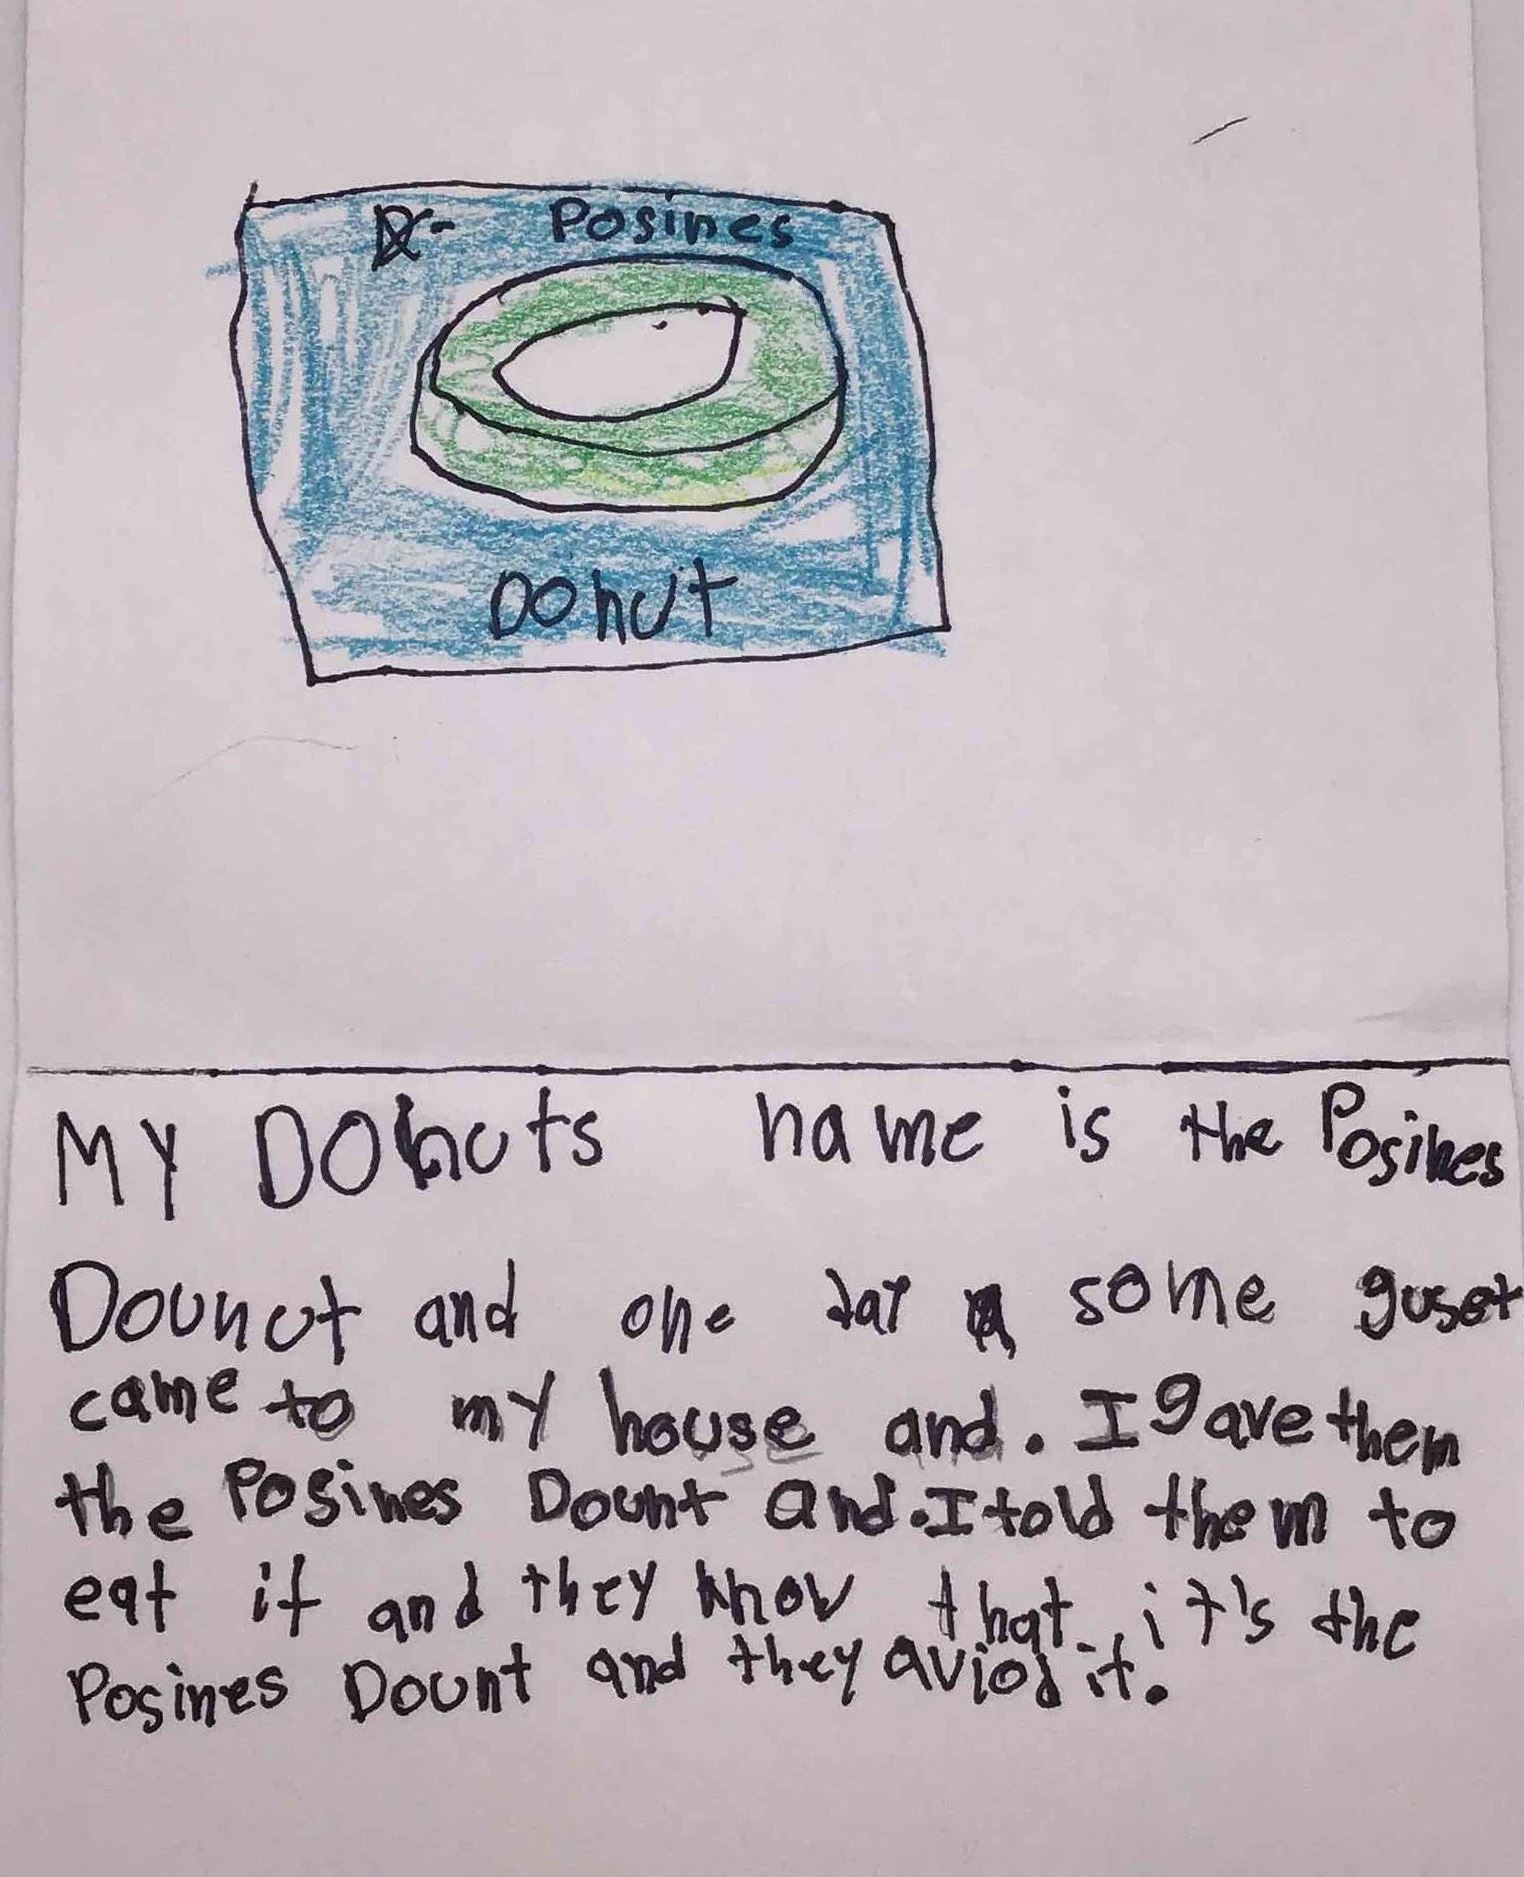 Posines
Donut
MY DOnuts name is the Posines
Dounut and one day some guset
came to my house and. I gave them
the Posines Dount and. I told them to
eat it and they know that it's the
Posines Dount and they aviod it.